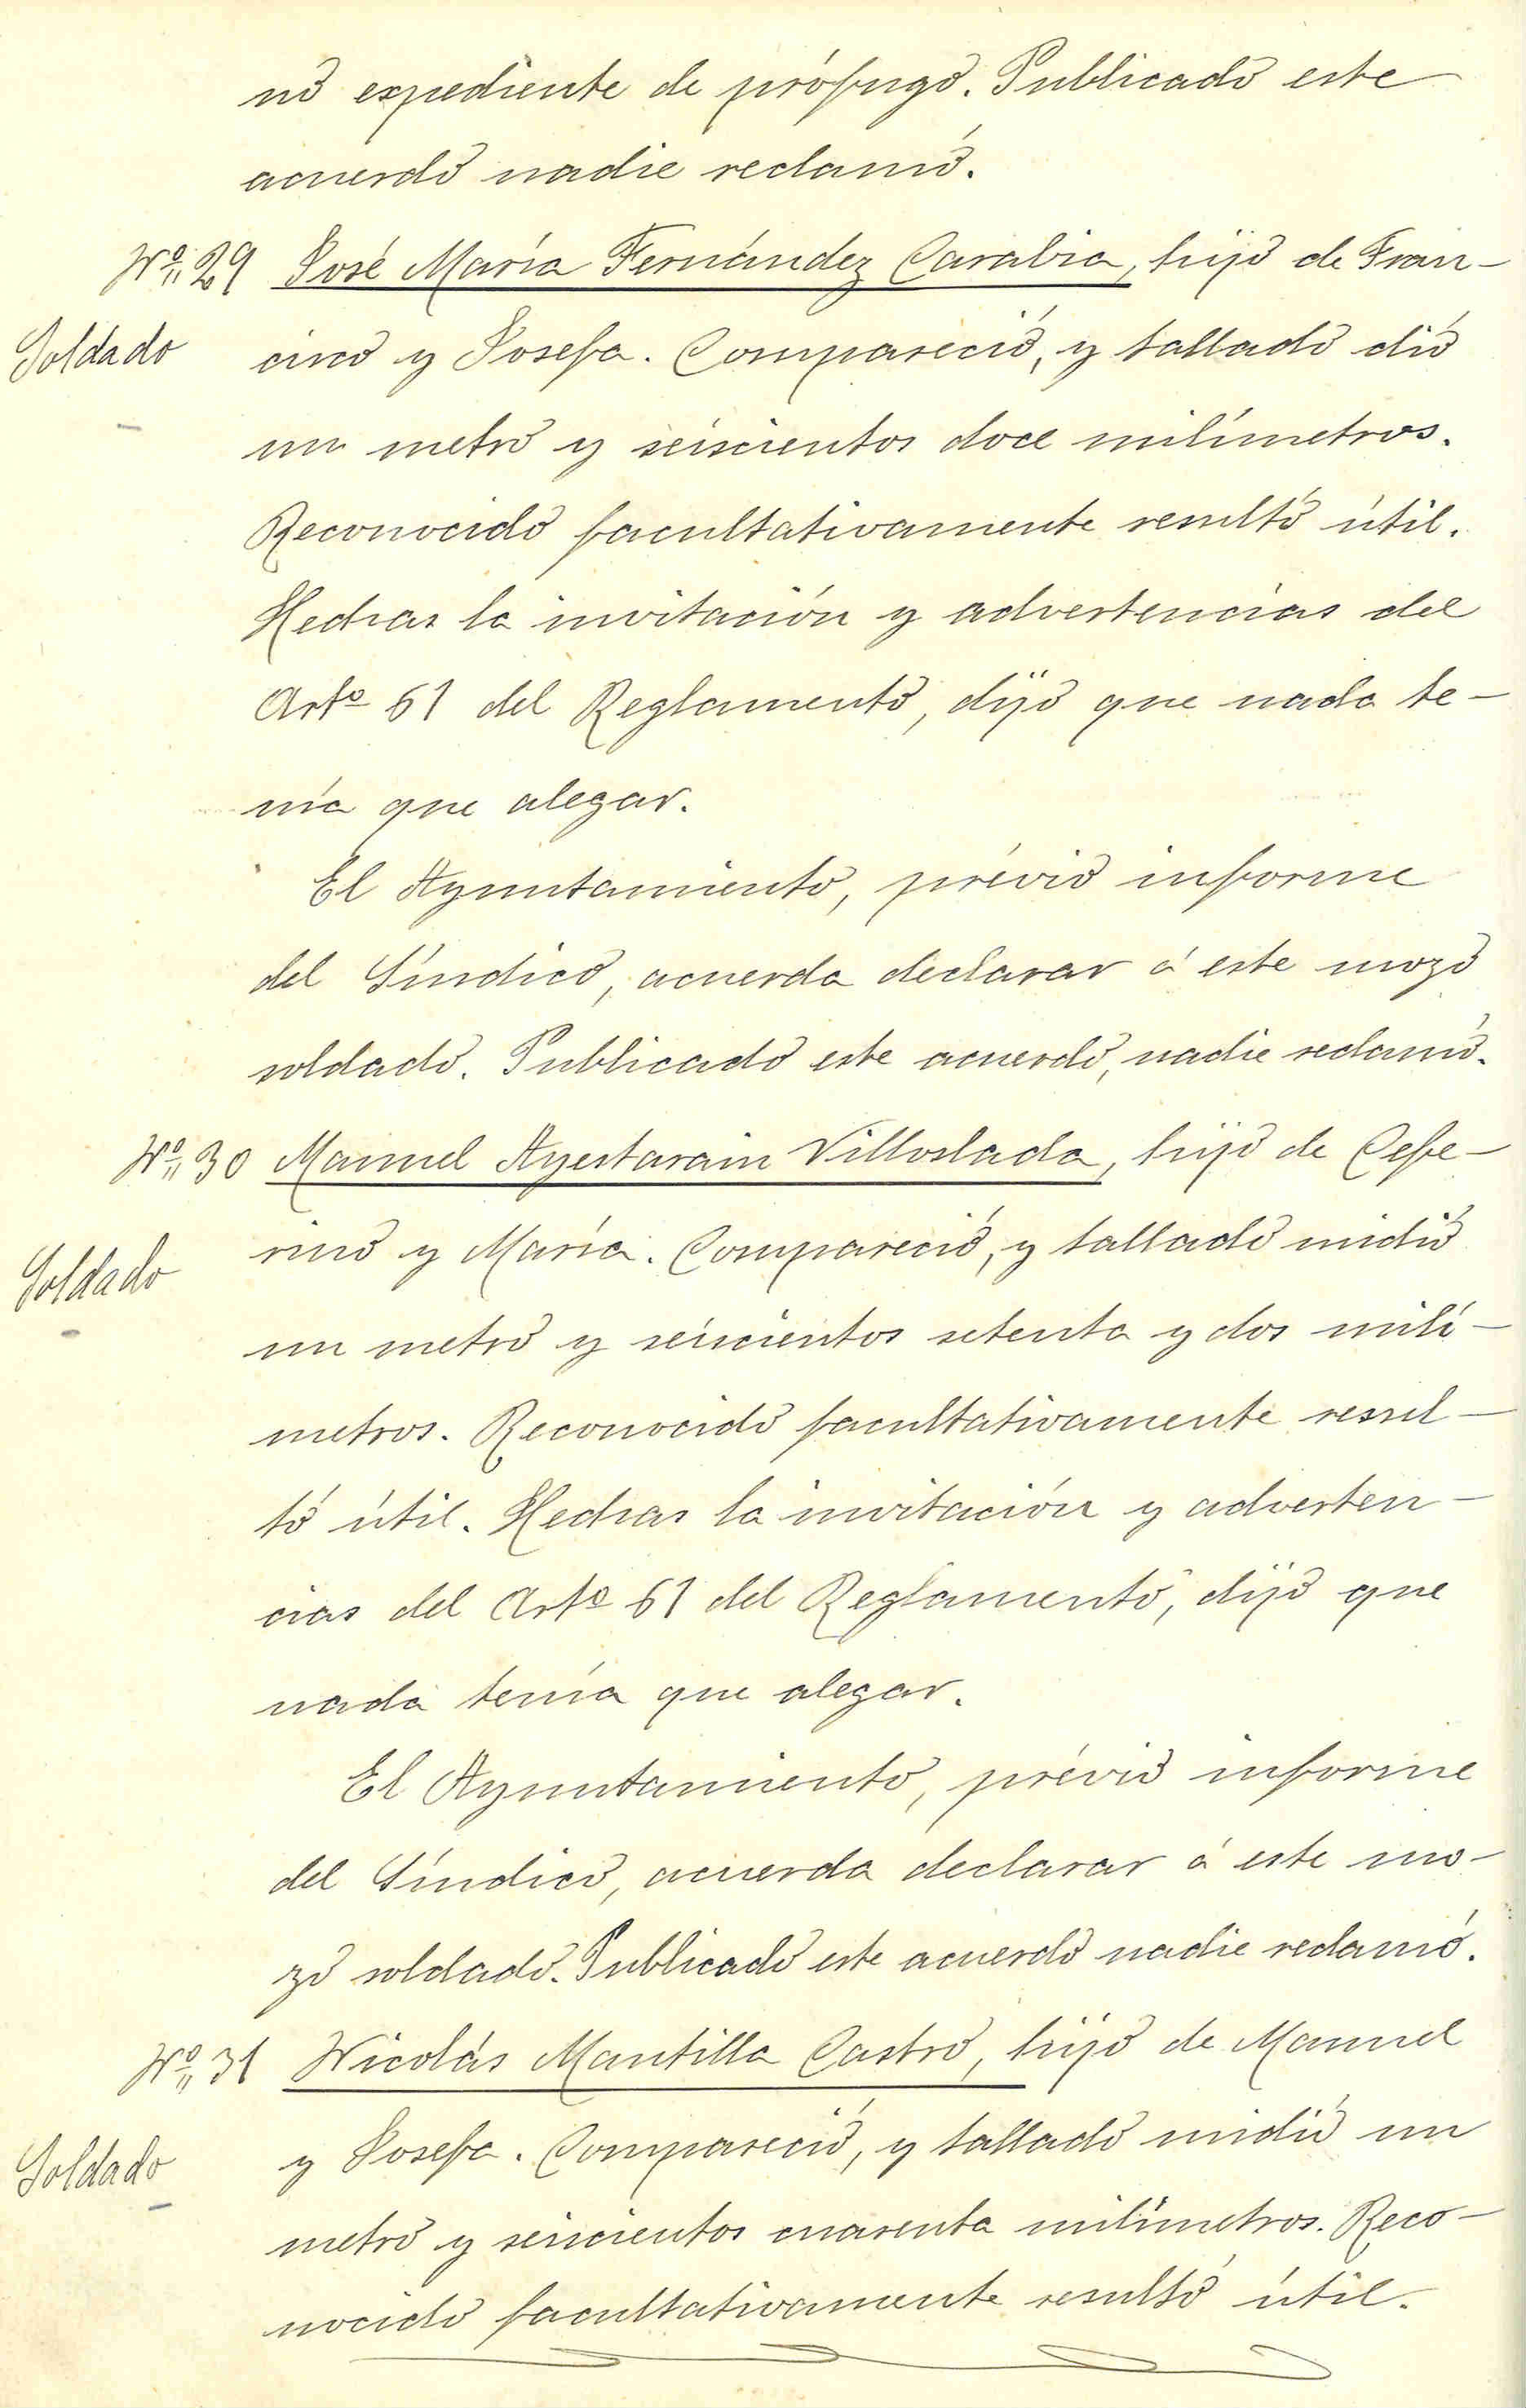 no expediente de prófugo. Publicado este
acuerdo nadie reclamó.
Nº 29 José María Fernández Carabia, hijo de Fran-
Soldado
cisco y Josefa. Compareció, y tallado dió
un metro y seiscientos doce milímetros.
Reconocido facultativamente resultó útil.
Hechas la invitación y advertencias del
Artº 61 del Reglamento, dijo que nada te-
nía que alegar.
El Ayuntamiento, prévio informe
del Síndico, acuerda declarar á este mozo
soldado. Publicado este acuerdo, nadie reclamó.
Nº 30 Manuel Ayestarain Villoslada, hijo de Cefe-
Soldado
rino y María. Compareció, y tallado midió
un metro y seiscientos setenta y dos milí-
metros. Reconocido facultativamente resul-
tó útil. Hechas la invitación y adverten-
cias del Artº 61 del Reglamento, dijo que
nada tenía que alegar.
El Ayuntamiento, prévio informe
del Síndico, acuerda declarar á este mo-
zo soldado. Publicado este acuerdo nadie reclamó.
Nº 31 Nicolás Mantilla Castro, hijo de Manuel
Soldado
y Josefa. Compareció, y tallado midió un
metro y seiscientos cuarenta milímetros. Reco-
nocido facultativamente resultó útil.